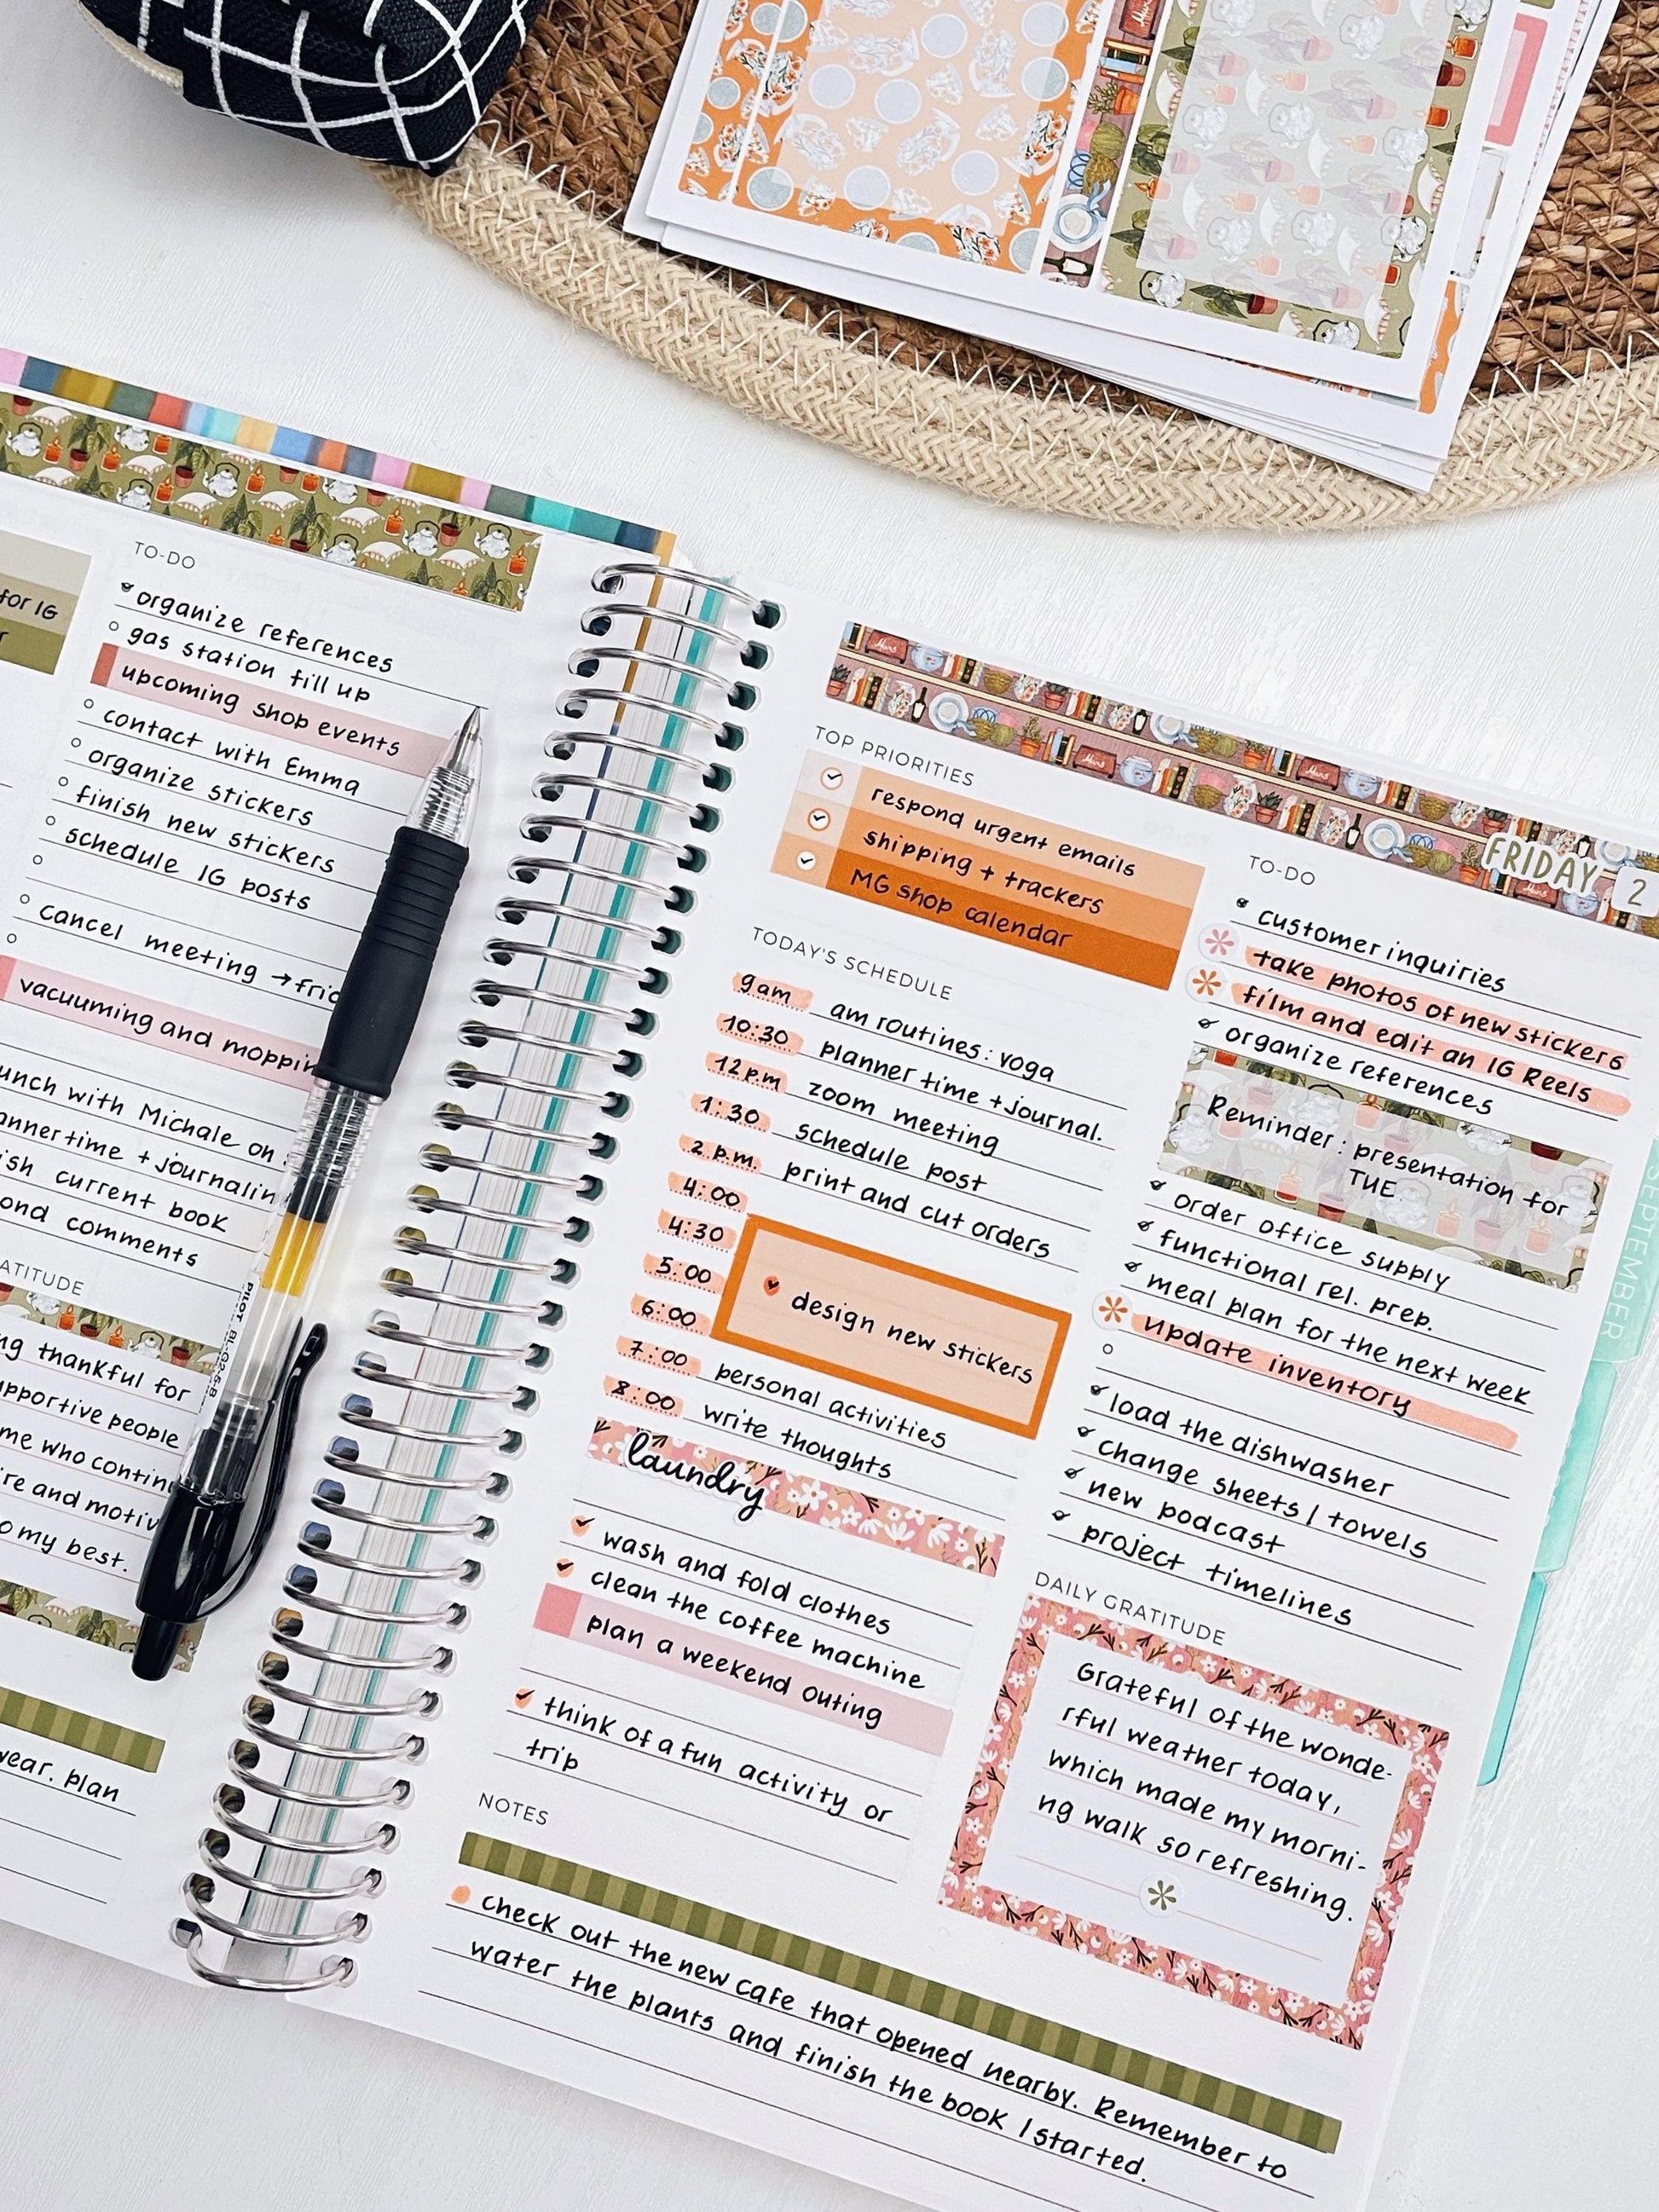 for IG
TO-DO
organize references
gas station fill up
upcoming shop events
contact with Emma
organize stickers
finish new stickers
schedule IG posts
cancel meeting → fri
vacuuming and moppin
unch with Michale on
anner time + journalin
ish current book
ond comments
ATITUDE
ng thankful for
pportive people
me who contin
re and motiv
o my best.
wear. plan
PILOT BL-G2-5-B
TOP PRIORITIES
respond urgent emails
shipping + trackers
MG shop calendar
TODAY'S SCHEDULE
9am am routines: yoga
10:30 planner time + journal.
12p.m zoom meeting
1:30 schedule post
2 p.m. print and cut orders
4:00
4:30
5:00 design new stickers
6:00
7:00 personal activities
8:00 write thoughts
laundry
wash and fold clothes
clean the coffee machine
plan a weekend outing
think of a fun activity or
trip
FRIDAY 2
TO-DO
customer inquiries
take photos of new stickers
film and edit an IG Reels
organize references
Reminder: presentation for
TUE
order office supply
functional rel. prep.
meal plan for the next week
update inventory
load the dishwasher
change sheets / towels
new podcast
project timelines
DAILY GRATITUDE
Grateful of the wonde-
rful weather today,
which made my morni-
ng walk so refreshing.
NOTES
check out the new cafe that opened nearby. Remember to
water the plants and finish the book I started.
SEPTEMBER